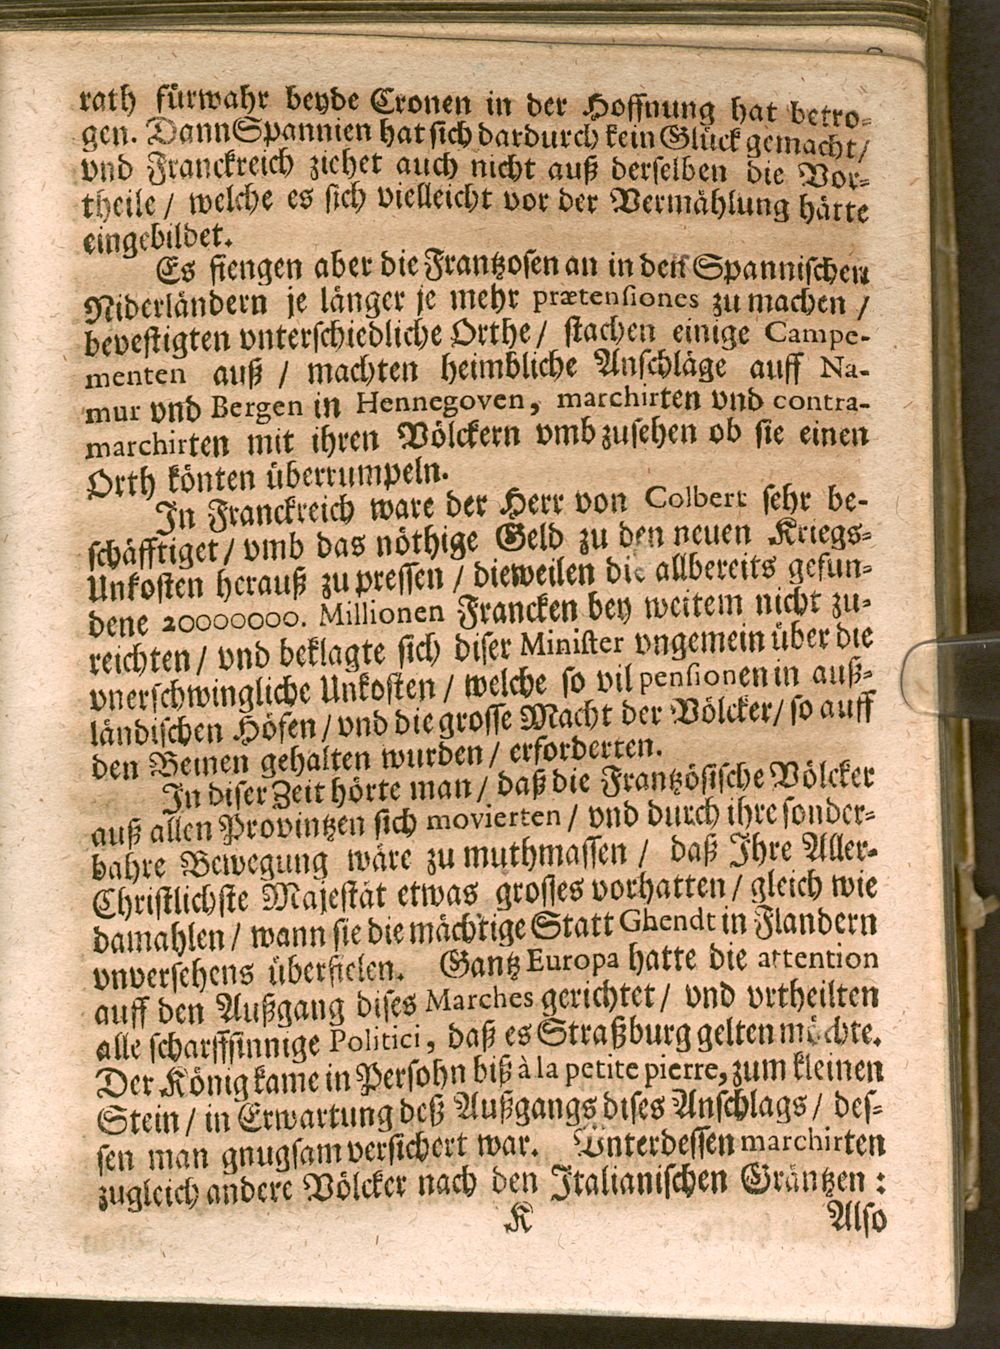 rath fürwahr beyde Cronen in der Hoffnung hat betro-
gen. Dann Spannien hat sich dardurch kein Glück gemacht/
vnd Franckreich ziehet auch nicht auß derselben die Vor-
theile / welche es sich vielleicht vor der Vermählung hätte
eingebildet.
Es fiengen aber die Frantzosen an in den Spannischen
Niderländern je länger je mehr prætensiones zu machen /
bevestigten vnterschiedliche Orthe / stachen einige Campe-
menten auß / machten heimbliche Anschläge auff Na-
mur vnd Bergen in Hennegoven, marchirten vnd contra-
marchirten mit ihren Völckern vmb zusehen ob sie einen
Orth könten überrumpeln.
In Franckreich ware der Herr von Colbert sehr be-
schäfftiget / vmb das nöthige Geld zu den neuen Kriegs-
Unkosten herauß zu pressen / dieweilen die allbereits gefun-
dene 20000000. Millionen Francken bey weitem nicht zu-
reichten / vnd beklagte sich diser Minister vngemein über die
vnerschwingliche Unkosten / welche so vil pensionen in auß-
ländischen Höfen / vnd die grosse Macht der Völcker / so auff
den Beinen gehalten wurden / erforderten.
In diser Zeit hörte man / daß die Frantzösische Völcker
auß allen Provintzen sich movierten / vnd durch ihre sonder-
bahre Bewegung wäre zu muthmassen / daß Ihre Aller-
Christlichste Majestät etwas grosses vorhatten / gleich wie
damahlen / wann sie die mächtige Statt Ghendt in Flandern
vnversehens überfielen. Gantz Europa hatte die attention
auff den Außgang dises Marches gerichtet / vnd vrtheilten
alle scharffsinnige Politici, daß es Straßburg gelten möchte.
Der König kame in Persohn biß à la petite pierre, zum kleinen
Stein / in Erwartung deß Außgangs dises Anschlags / des-
sen man gnugsam versichert war. Unterdessen marchirten
zugleich andere Völcker nach den Italianischen Gräntzen :
K Also